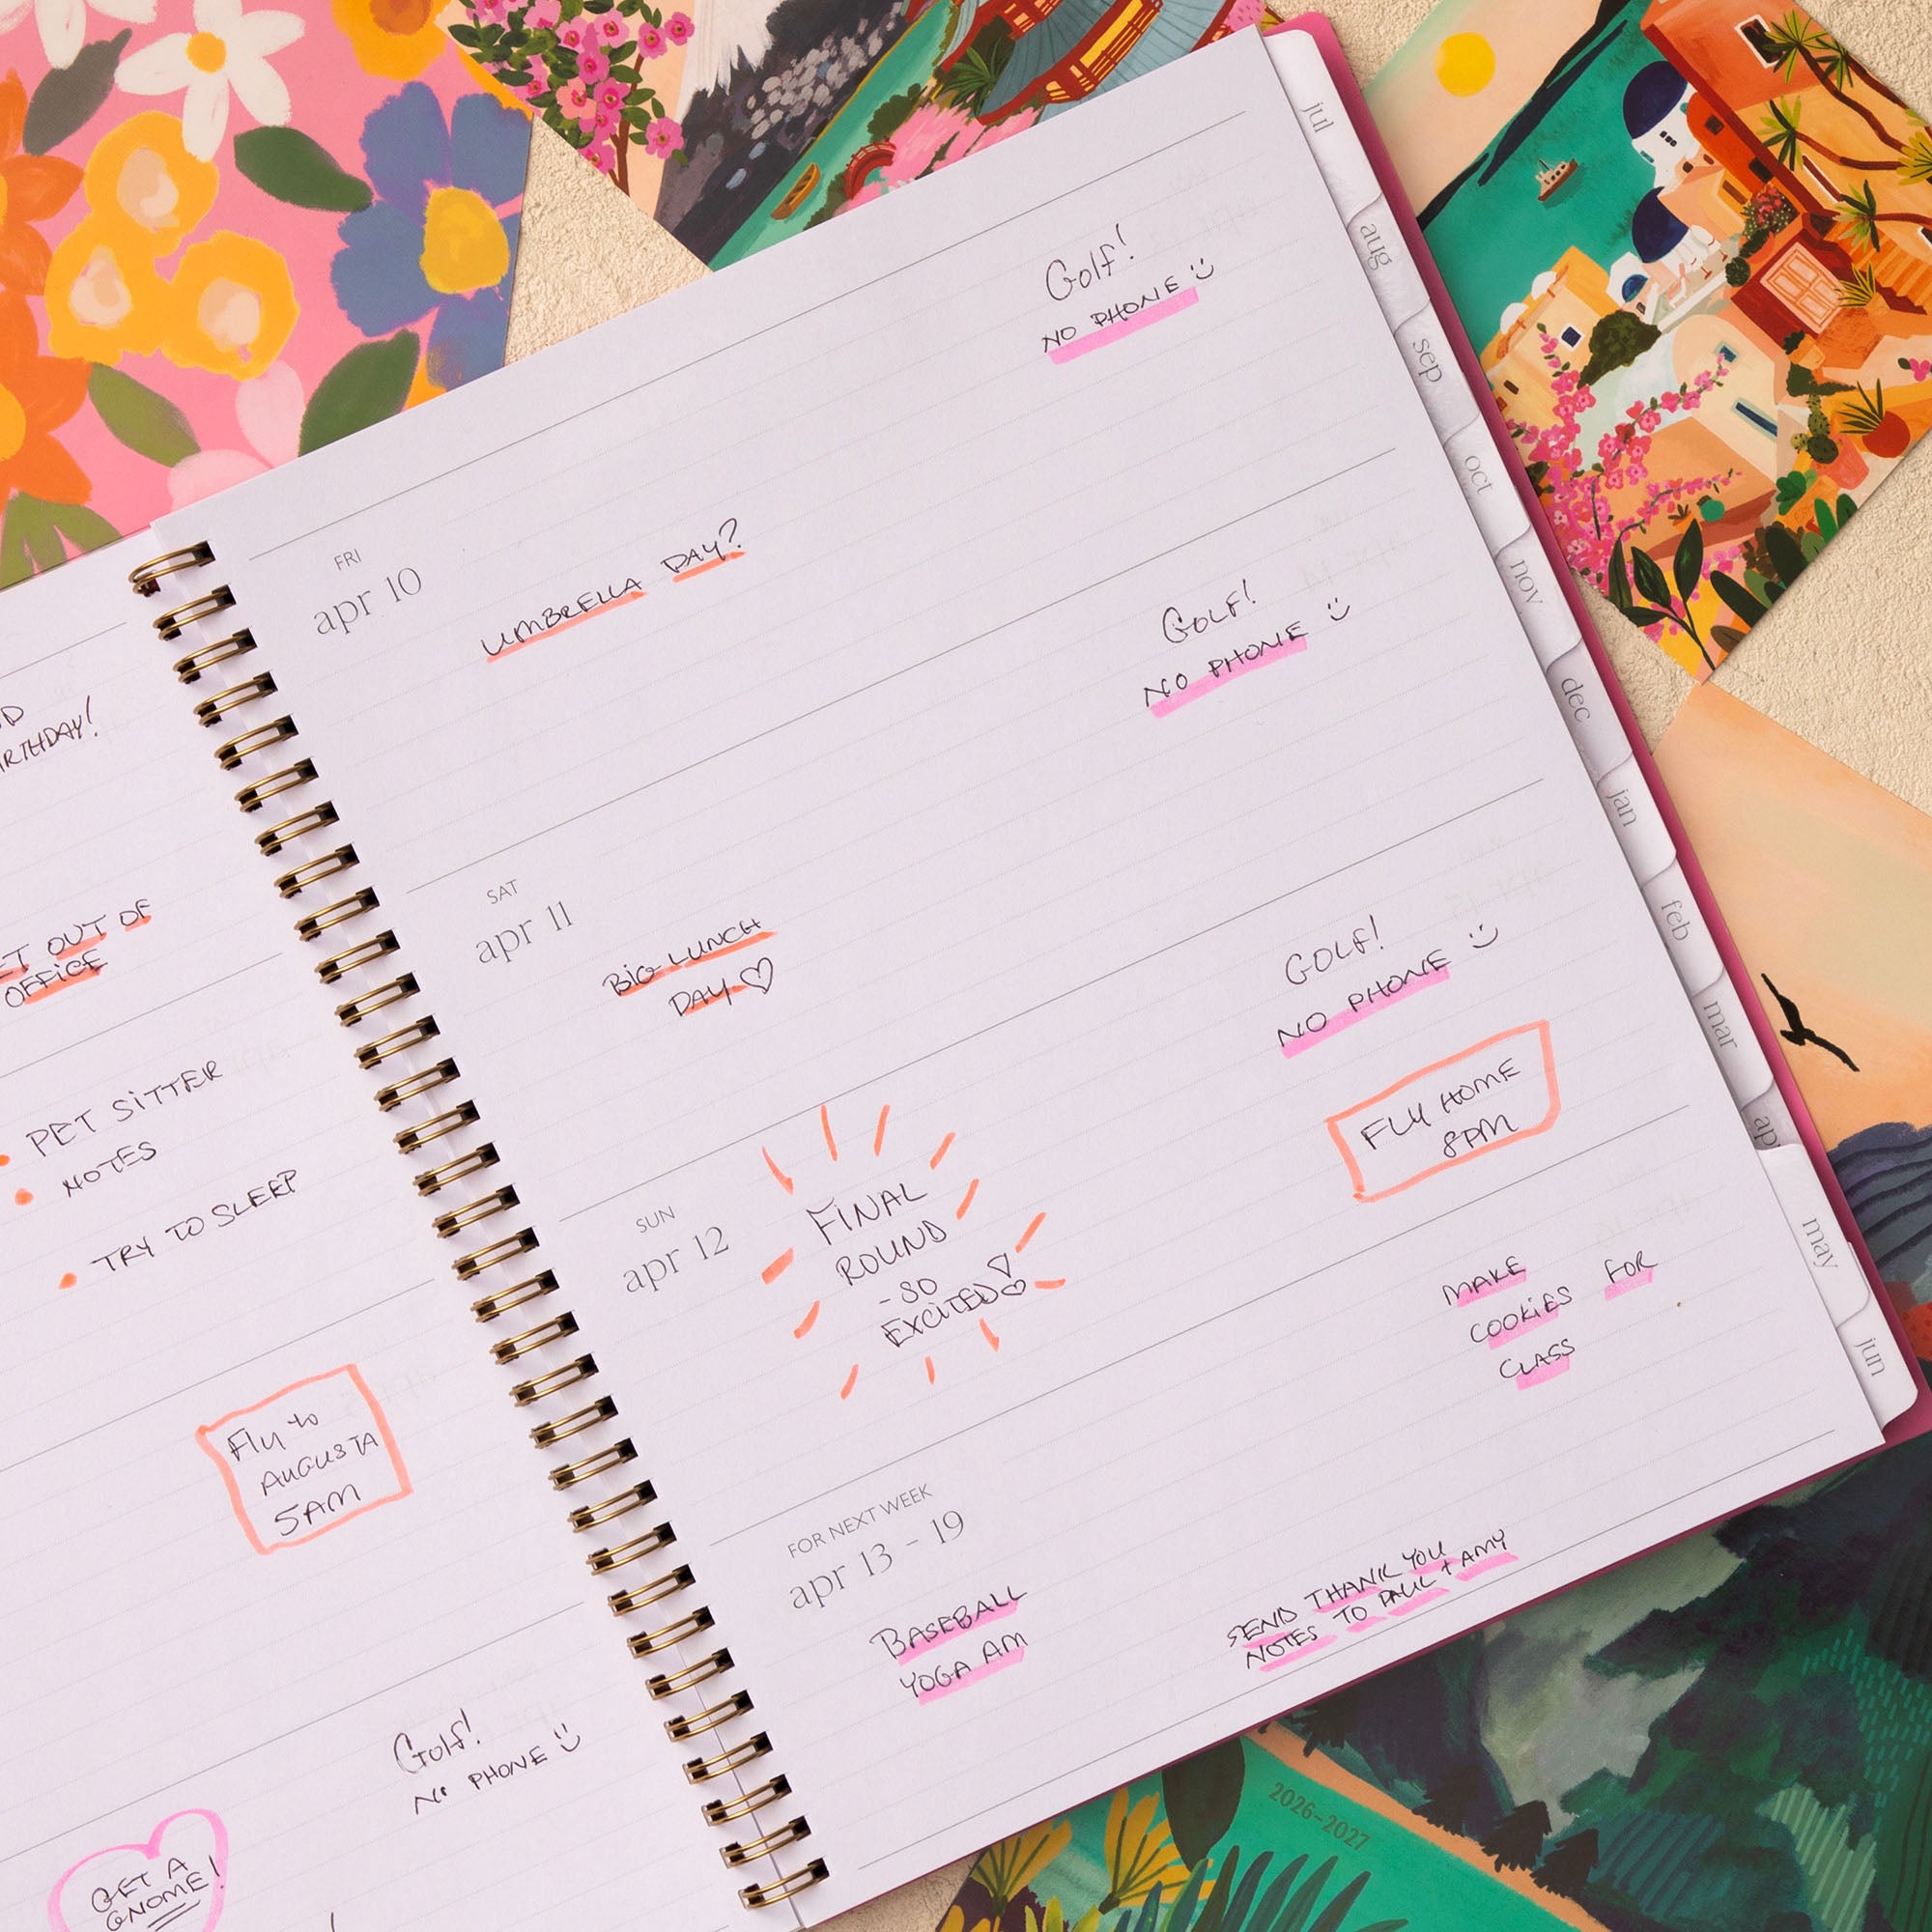 RTHDAY!
OUT OF
OFFICE
PET SITTER
NOTES
TRY TO SLEEP
Fly to
AUGUSTA
5AM
Golf!
No PHONE
GET A
GNOME!
FRI
apr 10
UMBRELLA DAY?
Golf!
NO PHONE
SAT
apr 11
BIG LUNCH
DAY
GOLF!
NO PHONE
SUN
apr 12
FINAL
ROUND
- SO
EXCITED
GOLF!
NO PHONE
FLY HOME
8PM
FOR NEXT WEEK
apr 13 - 19
BASEBALL
YOGA AM
MAKE
COOKIES FOR
CLASS
SEND THANK YOU
NOTES TO PAUL + AMY
jul
aug
sep
oct
nov
dec
jan
feb
mar
ap
may
jun
2026-2027